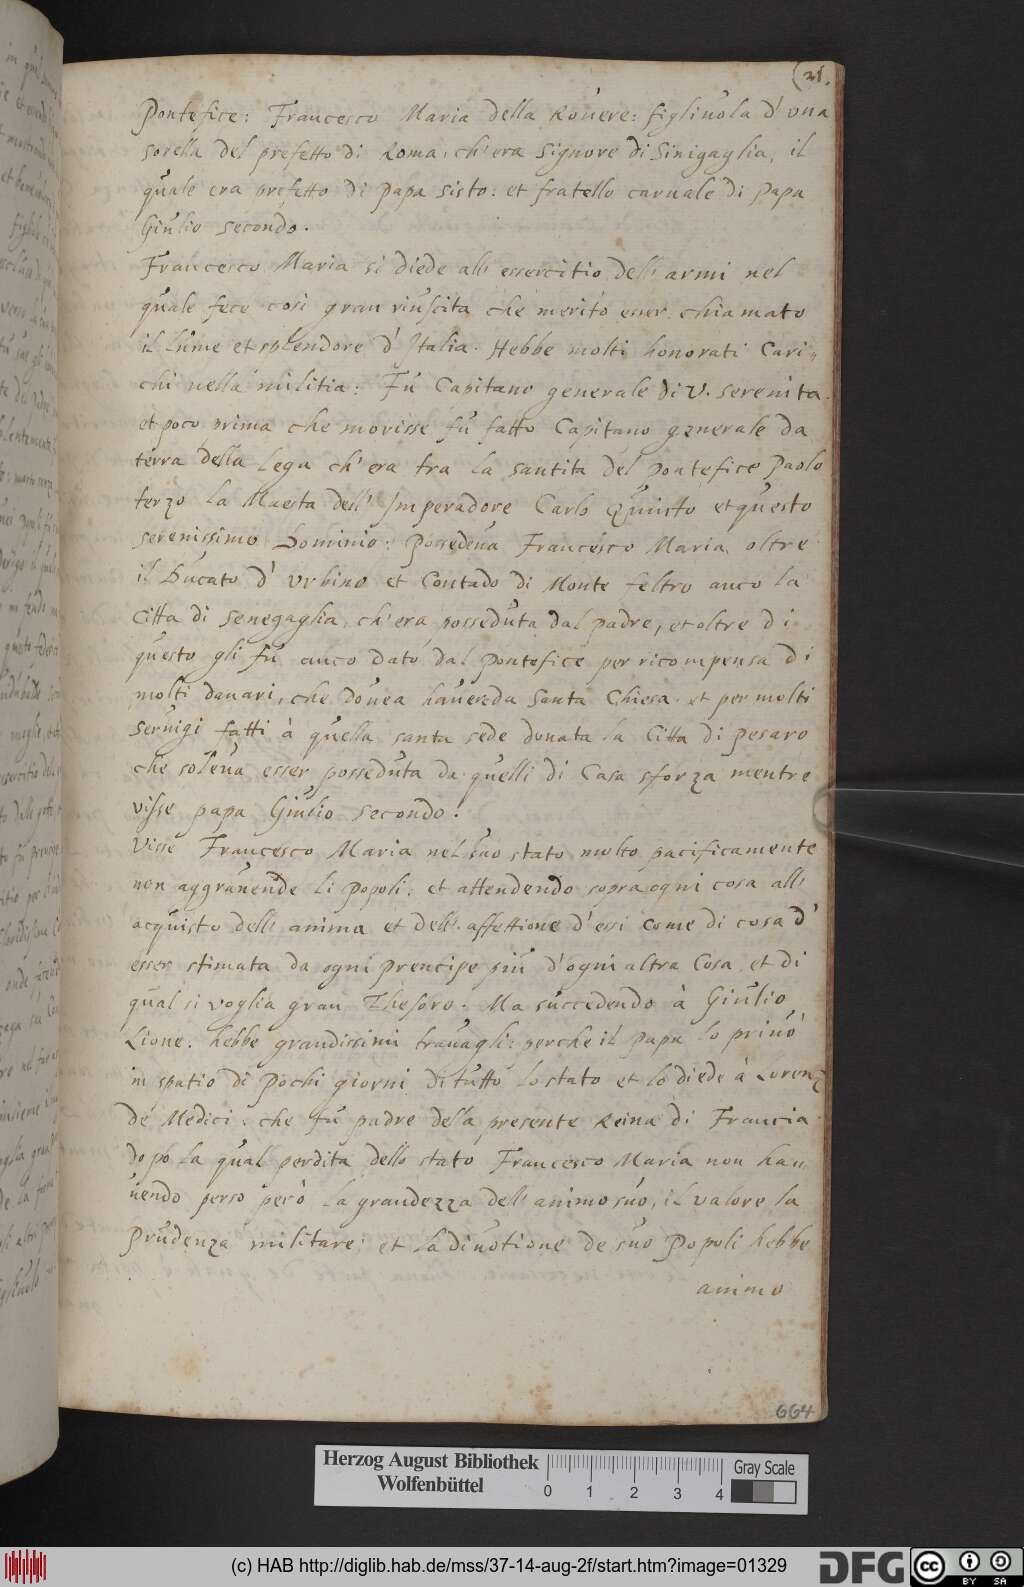 (21.
Pontefice: Francesco Maria della Rouere: figliuola d' una
sorella del prefetto di Roma, ch' era Signore di Sinigaglia, il
quale era prefetto di papa Sisto: et fratello carnale di Papa
Giulio secondo.
Francesco Maria si diede all' essercitio dell' armi nel
quale fece così gran riuscita che meritò esser chiamato
il lume et splendore d' Italia. Hebbe molti honorati Cari=
chi nella militia: Fù Capitano generale di V. serenita.
et poco prima che morisse fù fatto Capitano generale da
terra della Lega ch' era tra la santita del pontefice Paolo
terzo la Maesta dell' Imperadore Carlo Quinto et questo
serenissimo Dominio. Possedeua Francesco Maria, oltre
il Ducato d' Urbino et Contado di Monte feltro anco la
Citta di Senegaglia, ch' era posseduta dal padre, et oltre di
questo gli fù anco dato dal pontefice per ricompensa di
molti danari, che douea hauer da Santa Chiesa. et per molti
seruigi fatti à quella santa sede donata la Citta di pesaro
che soleua esser posseduta da quelli di Casa sforza mentre
visse papa Giulio secondo.
Visse Francesco Maria nel suo stato molto pacificamente
non aggrauende li popoli: et attendendo sopra ogni cosa all'
acquisto dell' anima et dell' affettione d' essi come di cosa d'
esser stimata da ogni prencipe più d' ogni altra Cosa, et di
qual si voglia gran Thesoro. Ma succedendo à Giulio
Lione. hebbe grandissimi trauagli: perche il papa lo priuò
in spatio di pochi giorni di tutto lo stato et lo diede à Lorenz
de Medici. che fù padre della presente Reina di Francia
dopò la qual perdita dello stato Francesco Maria non hau=
uendo perso però la grandezza dell' animo suo, il valore, la
prudenza militare: et la diuotione de suo Popoli hebbe
animo
664
Herzog August Bibliothek
Wolfenbüttel
0 1 2 3 4
Gray Scale
(c) HAB http://diglib.hab.de/mss/37-14-aug-2f/start.htm?image=01329
DFG
cc
BY SA